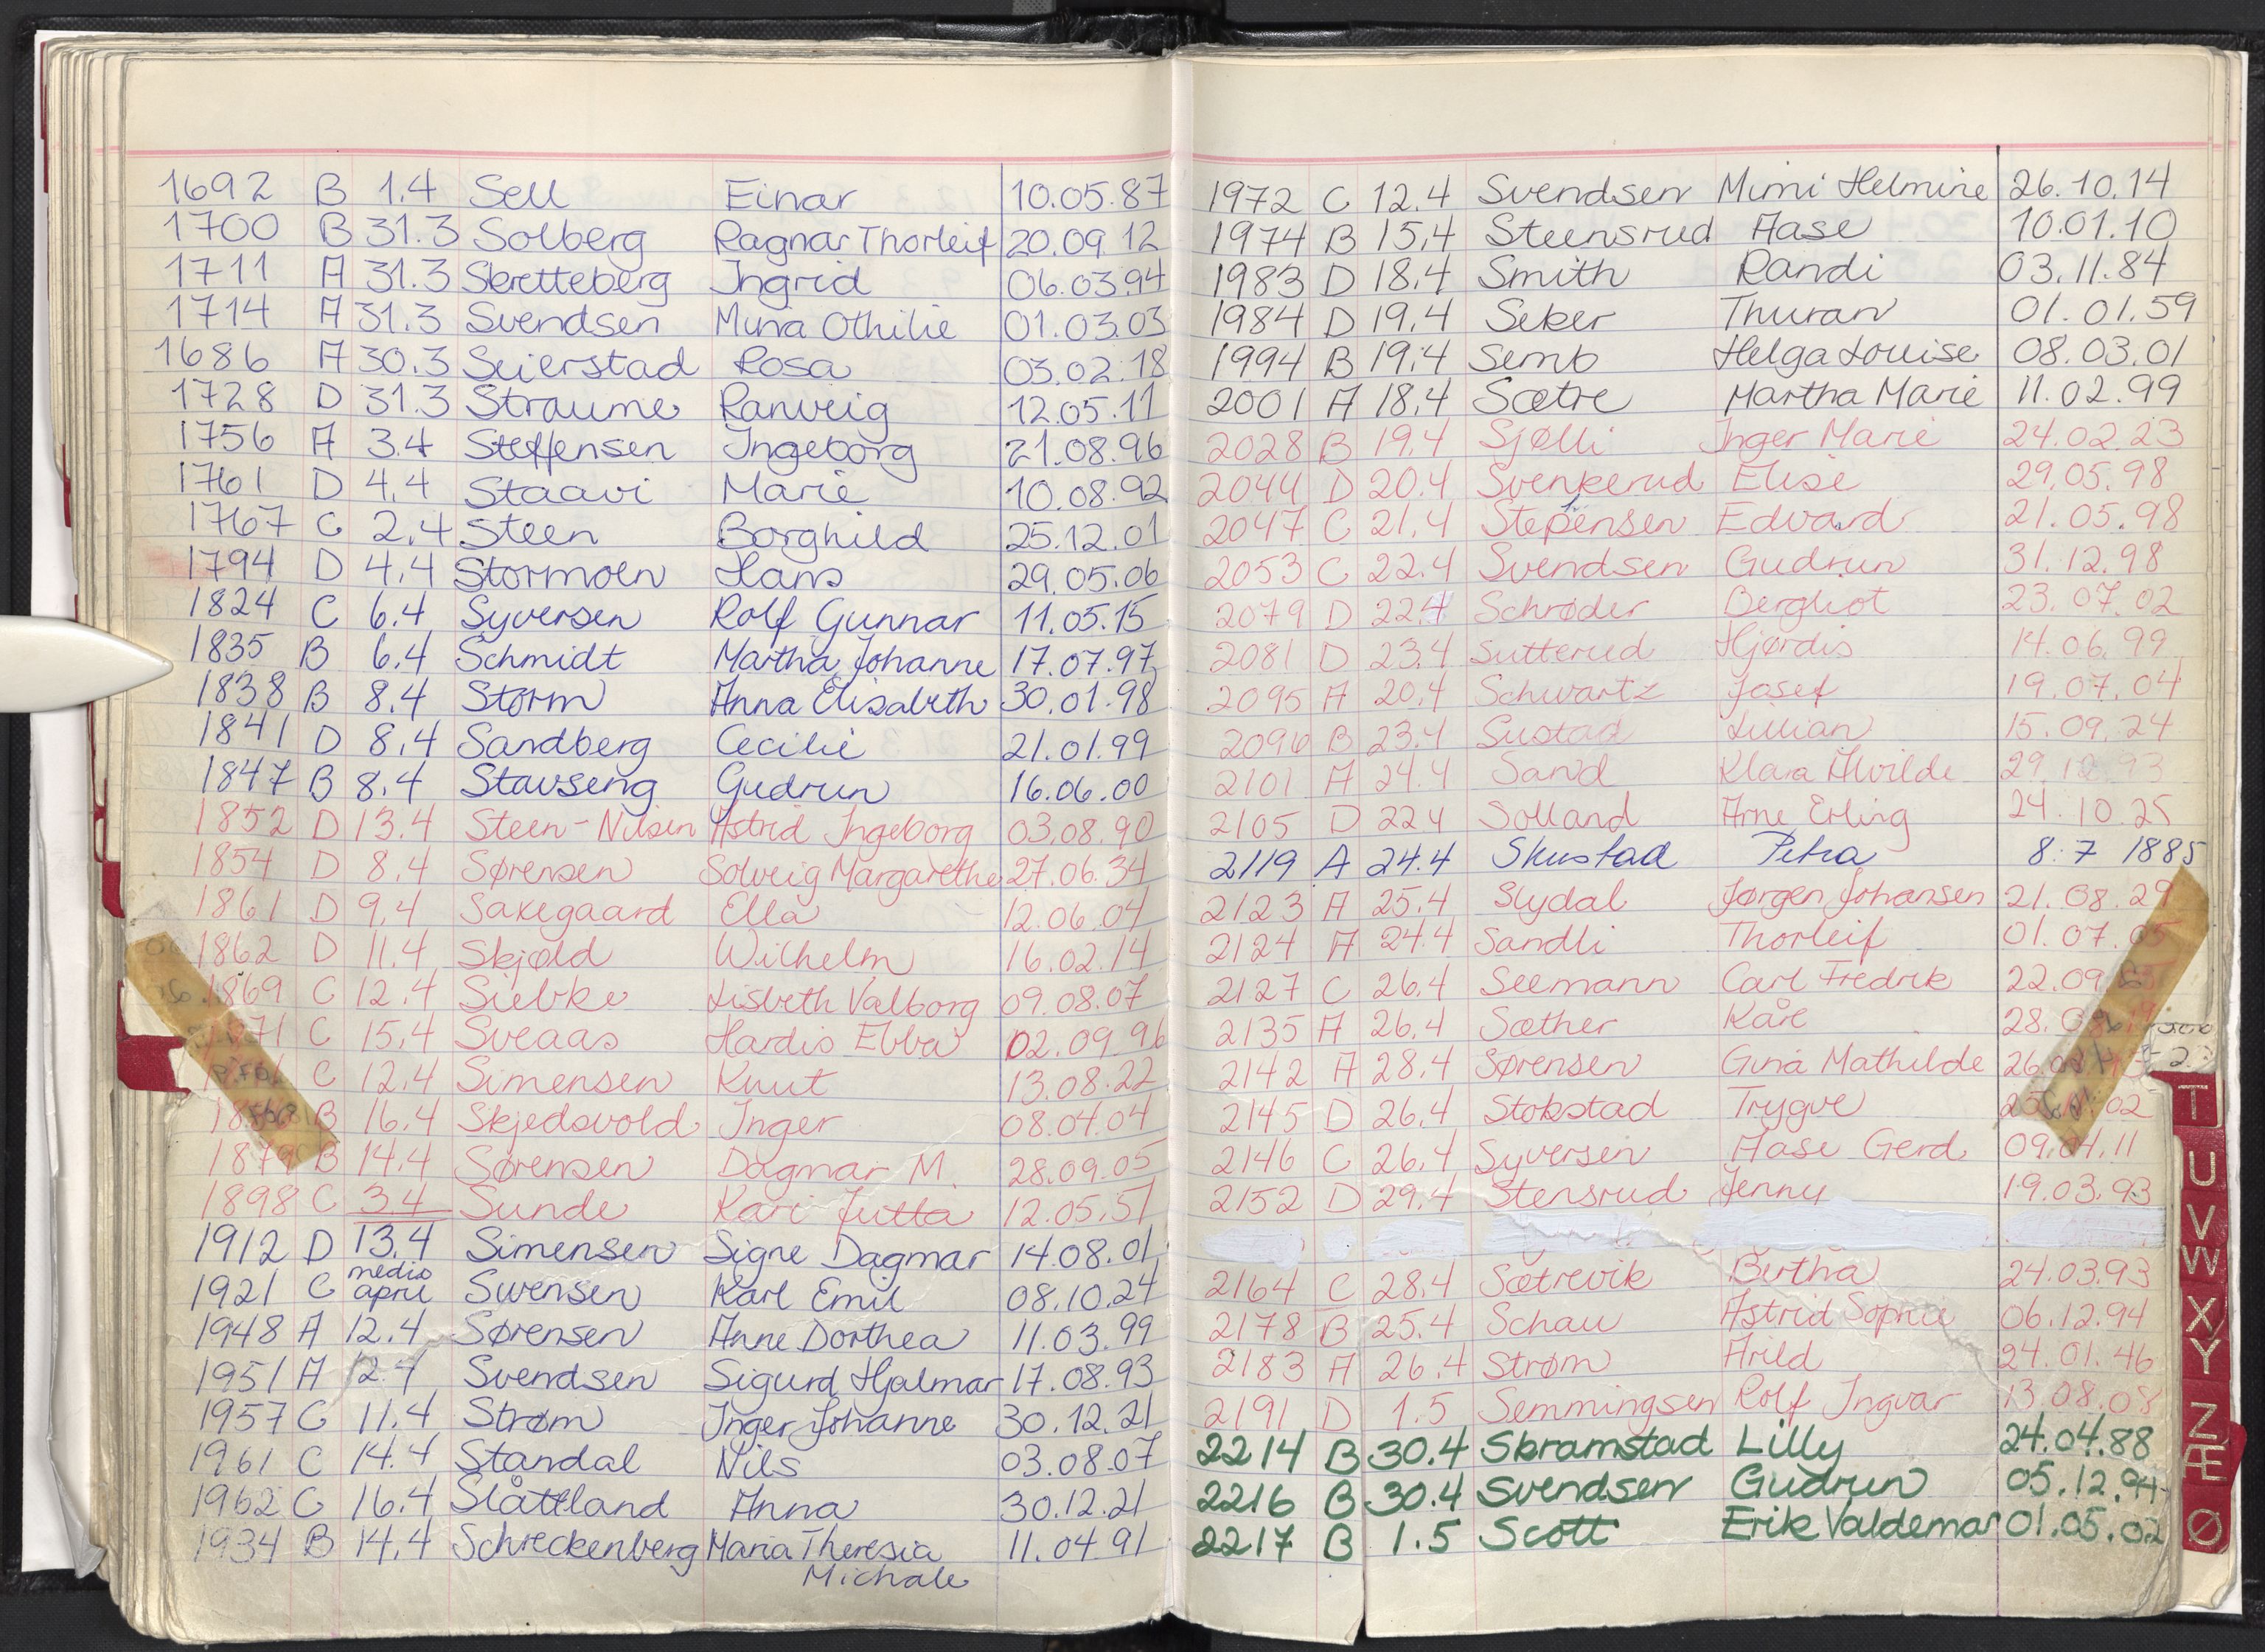 1692 B 1.4 Sell Einar 10.05.87
1700 B 31.3 Solberg Ragnar Thorleif 20.09.12
1711 A 31.3 Skretteberg Ingrid 06.03.94
1714 A 31.3 Svendsen Mina Othilie 01.03.03
1686 A 30.3 Seierstad Rosa 03.02.18
1728 D 31.3 Straume Ranveig 12.05.11
1756 A 3.4 Steffensen Ingeborg 21.08.96
1761 D 4.4 Staavi Marie 10.08.92
1767 C 2.4 Steen Borghild 25.12.01
1794 D 4.4 Stormoen Hans 29.05.06
1824 C 6.4 Syversen Rolf Gunnar 11.05.15
1835 B 6.4 Schmidt Martha Johanne 17.07.97
1838 B 8.4 Storm Anna Elisabeth 30.01.98
1841 D 8.4 Sandberg Cecilie 21.01.99
1847 B 8.4 Stavseng Gudrun 16.06.00
1852 D 13.4 Steen-Nilsen Astrid Ingeborg 03.08.90
1854 D 8.4 Sørensen Solveig Margarethe 27.06.34
1861 D 9.4 Saxegaard Ella 12.06.04
1862 D 11.4 Skjøld Wilhelm 16.02.14
1869 C 12.4 Siebke Lisbeth Valborg 09.08.07
C 15.4 Sveaas Hardis Ebba 02.09.96
C 12.4 Simensen Knut 13.08.22
B 16.4 Skjedsvold Inger 08.04.04
1879 B 14.4 Sørensen Dagmar M. 28.09.05
1898 C 3.4 Sunde Kari Jutta 12.05.51
1912 D 13.4 Simensen Signe Dagmar 14.08.01
1921 C medio april Svensen Karl Emil 08.10.24
1948 A 12.4 Sørensen Anne Dorthea 11.03.99
1951 A 12.4 Svendsen Sigurd Hjalmar 17.08.93
1957 C 11.4 Strøm Inger Johanne 30.12.21
1961 C 14.4 Standal Nils 03.08.07
1962 C 16.4 Slåttland Anna 30.12.21
1934 B 14.4 Schreckenberg Maria Theresia 11.04.91
Michale
1972 C 12.4 Svendsen Mimi Helmine 26.10.14
1974 B 15.4 Steensrud Aase 10.01.10
1983 D 18.4 Smith Randi 03.11.84
1984 D 19.4 Seker Thuran 01.01.59
1994 B 19.4 Semb Helga Louise 08.03.01
2001 A 18.4 Sætre Martha Marie 11.02.99
2028 B 19.4 Sjølli Inger Marie 24.02.23
2044 D 20.4 Svenkerud Elise 29.05.98
2047 C 21.4 Stepensen Edvard 21.05.98
2053 C 22.4 Svendsen Gudrun 31.12.98
2079 D 22.4 Schrøder Bergliot 23.07.02
2081 D 23.4 Sutterud Hjørdis 14.06.99
2095 A 20.4 Schwartz Josef 19.07.04
2096 B 23.4 Sustad Lillian 15.09.24
2101 A 24.4 Sand Klara Alvilde 29.10.93
2105 D 22.4 Solland Arne Erling 24.10.25
2119 A 24.4 Skustad Petra 8.7 1885
2123 A 25.4 Slydal Jørgen Johansen 21.08.29
2124 A 24.4 Sandli Thorleif 01.07.05
2127 C 26.4 Seemann Carl Fredrik 22.09
2135 A 26.4 Sæther Kåre 28.
2142 A 28.4 Sørensen Gina Mathilde
2145 D 26.4 Stokstad Trygve 02
2146 C 26.4 Syversen Aase Gerd 09.04.11
2152 D 29.4 Stensrud Jenny 19.03.93
2164 C 28.4 Sætrevik Bertha 24.03.93
2178 B 25.4 Schau Astrid Sophie 06.12.94
2183 A 26.4 Strøm Arild 24.01.46
2191 D 1.5 Semmingsen Rolf Ingvar 13.08.08
2214 B 30.4 Skramstad Lilly 24.04.88
2216 B 30.4 Svendsen Gudrun 05.12.94
2217 B 1.5 Scott Erik Valdemar 01.05.02
T
U
V
W
X
Y
Z
Æ
Ø